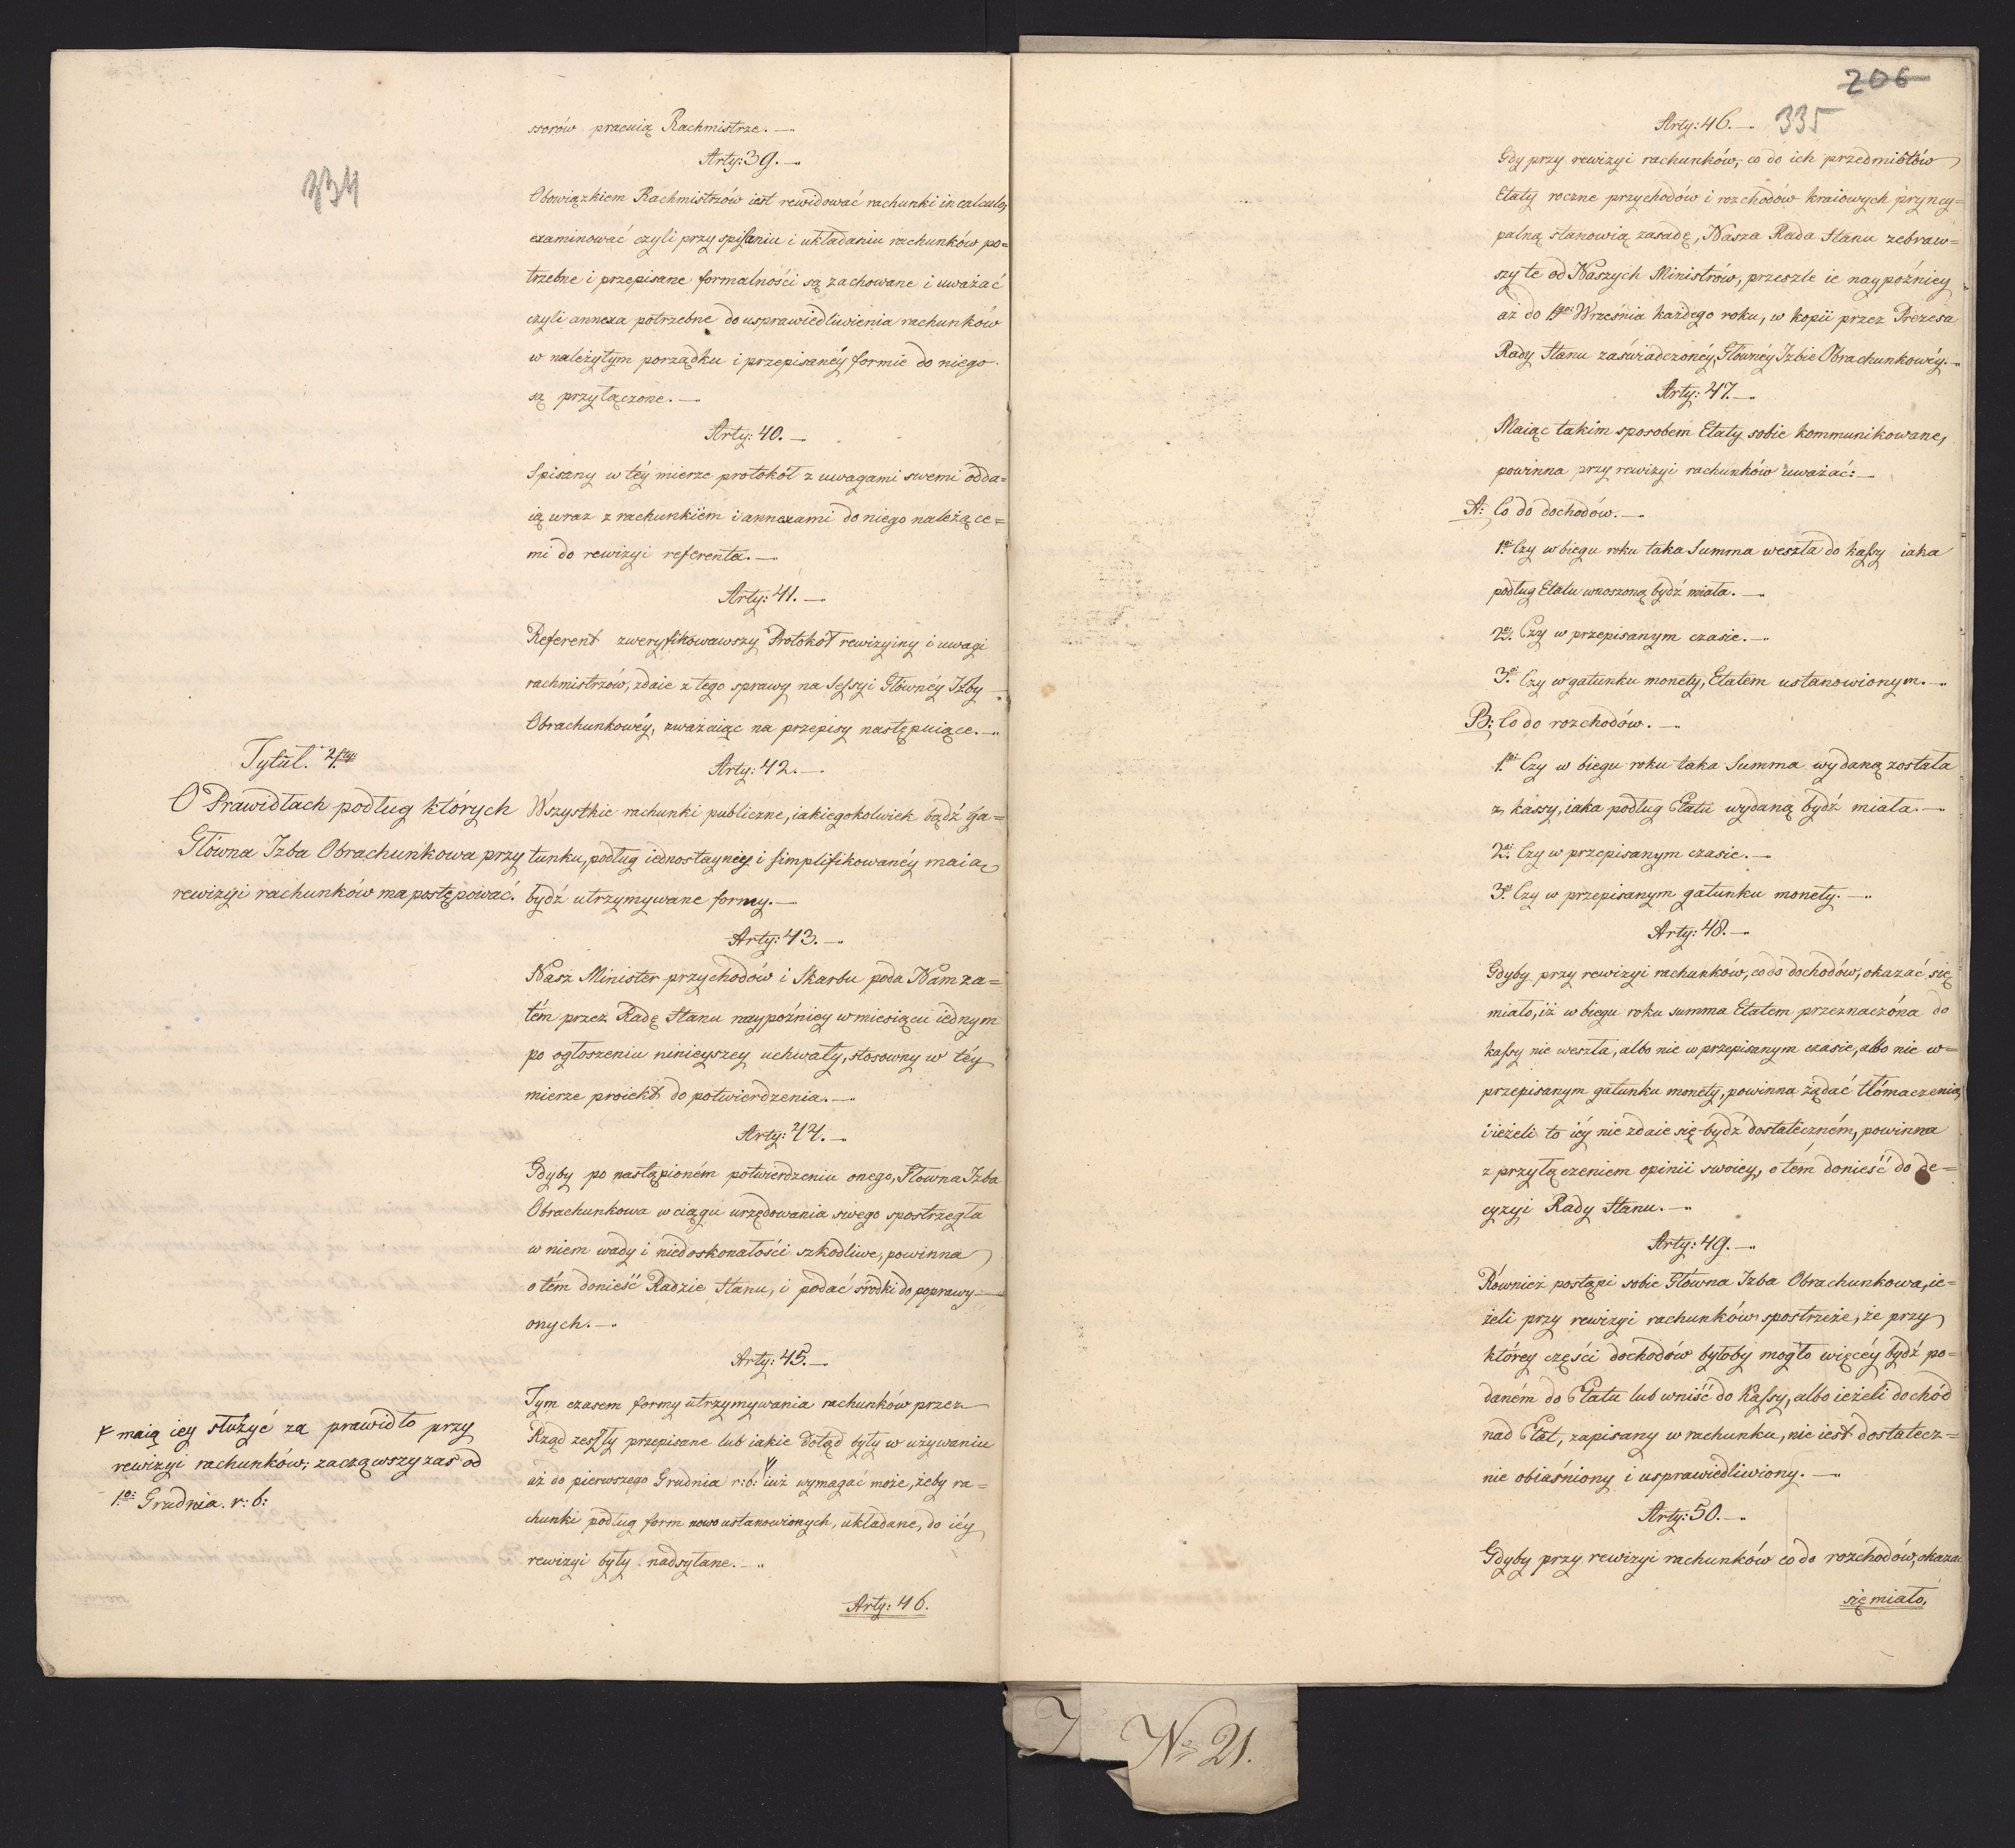 334
ssorów pracuią Rachmistrze. —
Arty: 39. —
Obowiązkiem Rachmistrzów iest rewidować rachunki in calculo,
examinować czyli przy spisaniu i układaniu rachunków po=
trzebne i przepisane formalności są zachowane i uważać
czyli annexa potrzebne do usprawiedliwienia rachunków
w należytym porządku i przepisanéy formie do niego
są przyłączone. —
Arty: 40. —
Spisany w téy mierze protokół z uwagami swemi odda=
ią wraz z rachunkiem i annexami do niego należące=
mi do rewizyi referenta. —
Arty: 41. —
Referent zweryfikowawszy Protokół rewizyiny i uwagi
rachmistrzów, zdaie z tego sprawę na Sessyi Główney Izby
Obrachunkowéy, zważaiąc na przepisy następuiące. —
Tytuł. 4ty
O Prawidłach podług których
Główna Izba Obrachunkowa przy
rewizyi rachunków ma postępować.
Arty: 42. —
Wszystkie rachunki publiczne, iakiegokolwiek bądź ga=
tunku, podług iednostayney i simplifikowanéy maią
bydź utrzymywane formy. —
Arty: 43. —
Nasz Minister przychodów i Skarbu poda Nam za=
tém przez Radę Stanu naypóźniey w miesiącu iednym
po ogłoszeniu ninieyszey uchwały, stosowny w téy
mierze proiekt do potwierdzenia. —
Arty: 44. —
Gdyby po nastąpioném potwierdzeniu onego, Główna Izba
Obrachunkowa w ciągu urzędowania swego spostrzegła
w niem wady i niedoskonałości szkodliwe, powinna
o tém donieść Radzie Stanu, i podać środki do poprawy
onych. —
Arty: 45. —
Tym czasem formy utrzymywania rachunków przez
Rząd zeszły przepisane lub iakie dotąd były w używaniu
aż do pierwszego Grudnia r: b: iuż wymagać może, żeby ra=
chunki podług form nowo ustanowionych, układane, do iéy
rewizyi były nadsyłane. —
maią iey służyć za prawidło przy
rewizyi rachunków; zacząwszy zaś od
1go: Grudnia. r: b:
Arty: 46.
206
335
Arty: 46. —
Gdy przy rewizyi rachunków, co do ich przedmiotów
Etaty roczne przychodów i rozchodów kraiowych pryncy=
palną stanowią zasadę, Nasza Rada Stanu zebraw=
szy te od Naszych Ministrów, przeszle ie naypóźniey
aż do 1go Września każdego roku, w kopii przez Prezesa
Rady Stanu zaświadczonéy, Główney Izbie Obrachunkowéy. —
Arty: 47. —
Maiąc takim sposobem Etaty sobie kommunikowane,
powinna przy rewizyi rachunków uważać: —
A: Co do dochodów. —
1o Czy w biegu roku taka Summa weszła do kassy iaka
podług Etatu wnoszoną bydź miała. —
2o. Czy w przepisanym czasie. —
3o. Czy w gatunku monety, Etatem ustanowionym. —
B: Co do rozchodów. —
1o Czy w biegu roku taka Summa wydaną została
z kassy, iaka podług Etatu wydaną bydź miała. —
2o. Czy w przepisanym czasie. —
3o Czy w przepisanym gatunku monety. —
Arty: 48. —
Gdyby przy rewizyi rachunków, co do dochodów, okazać się
miało, iż w biegu roku summa Etatem przeznaczóna do
kassy nie weszła, albo nie w przepisanym czasie, albo nie w=
przepisanym gatunku monety, powinna żądać tłómaczenia,
i ieżeli to iéy nie zdaie się bydź dostateczném, powinna
z przyłączeniem opinii swoiey, o tém donieść do de=
cyzyi Rady Stanu. —
Arty: 49. —
Również postąpi sobie Główna Izba Obrachunkowa, ie=
żeli przy rewizyi rachunków spostrzeże, że przy
którey części dochodów byłoby mogło więcéy bydź po=
daném do Etatu lub wniść do Kassy, albo ieżeli dochód
nad Etat, zapisany w rachunku, nie iest dostatecz=
nie obiaśniony i usprawiedliwiony. —
Arty: 50. —
Gdyby przy rewizyi rachunków co do rozchodów, okazać
się miało,
No 21.